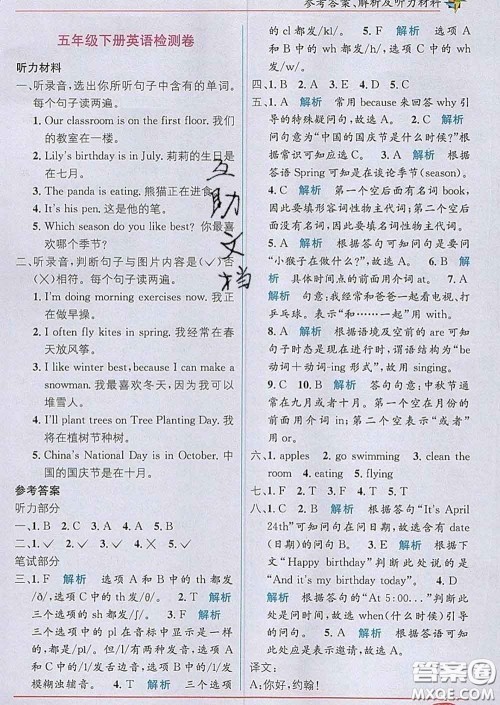 参考答案、解析及听力材料
五年级下册英语检测卷
听力材料
一、听录音,选出你所听句子中含有的单词。
每个句子读两遍。
1. Our classroom is on the first floor. 我们
的教室在一楼。
2. Lily's birthday is in July. 莉莉的生日是
在七月。
3. The panda is eating. 熊猫正在进食。
4. It's his pen. 这是他的笔。
5. Which season do you like best? 你最喜
欢哪个季节?
二、听录音,判断句子与图片内容是(✓)否
(×)相符。每个句子读两遍。
1. I'm doing morning exercises now. 我正
在做早操。
2. I often fly kites in spring. 我经常在春
天放风筝。
3. I like winter best, because I can make a
snowman. 我最喜欢冬天,因为我可以
堆雪人。
4. I'll plant trees on Tree Planting Day. 我
们在植树节种树。
5. China's National Day is in October. 中
国的国庆节是在十月。
参考答案
听力部分
一、1. B 2. C 3. A 4. A 5. B
二、1. ✓ 2. ✓
笔试部分
三、1. F 解析 选项 A 和 B 中的 th 都发
/ð/,选项 C 中的 th 发/θ/。 2. T 解析
三个选项的 sh 都发/ʃ/。 3. T 解析
三个选项中的 pl 在音标中显示是一样
的,都是/pl/。但 T 和 B 中的/l/发舌边音,
选项 C 中的/l/与
模糊浊辅音。 4. T 解析 三个选项中
的 cl 都发/kl/。 5. F 解析 选项
A 和 B 中的 wh 都发/h/,选项 C 中的 wh
发/w/。
四、1. B 2. A 3. A 4. C 5. C
五、1. A 解析 常用 because 来回答 why 引
导的特殊疑问句,故选 A。 2. C 解析
问句意为“中国的国庆节是什么时候?”根
据常识可知应选 C。 3. A 解析 根据
答语 Spring 可知是在谈论季节(season)。
4. B 解析 第一个空后面有名词 book,
因此要填形容词性物主代词;第二个空后
没有名词,因此要填名词性物主代词。
5. C 解析 根据答句可知,问句在问
“小猴子在做什么?”,故选 C。 6. B 解
析 具体时间点的前面用介词 at。 7. C
解析 句意:我经常和爸爸一起看电视、打
乒乓球。表示“和……一起”用 with。
8. A 解析 根据语境及空前的 are 可知
句子时态为现在进行时,谓语结构为“be
动词+动词-ing 形式”,故选 A。
9. C 10. B 解析 答句句意:中秋节通
常在九月或者十月。第一个空在月份的
前面用介词 in;第二个空表示“或者”
用 or。
六、1. apples 2. go swimming 3. clean the
room 4. eating 5. flying
七、1. F 解析 根据答句“It's April
24th”可知,问句内容应该是含有 date
(日期)的问句。 2. B 解析 根据下
文“Happy birthday”判断此处说的是
“And it's my birthday today”。 3. E
解析 根据答句“At 5:00...”判断此
处是问时间,是 when(什么时候)引导
的问句。 4. A 解析 根据答句判断
此处应是表示邀请,故选 A。
译文:
A:你好,约翰!
互助文档
答案圈
MXQE.COM